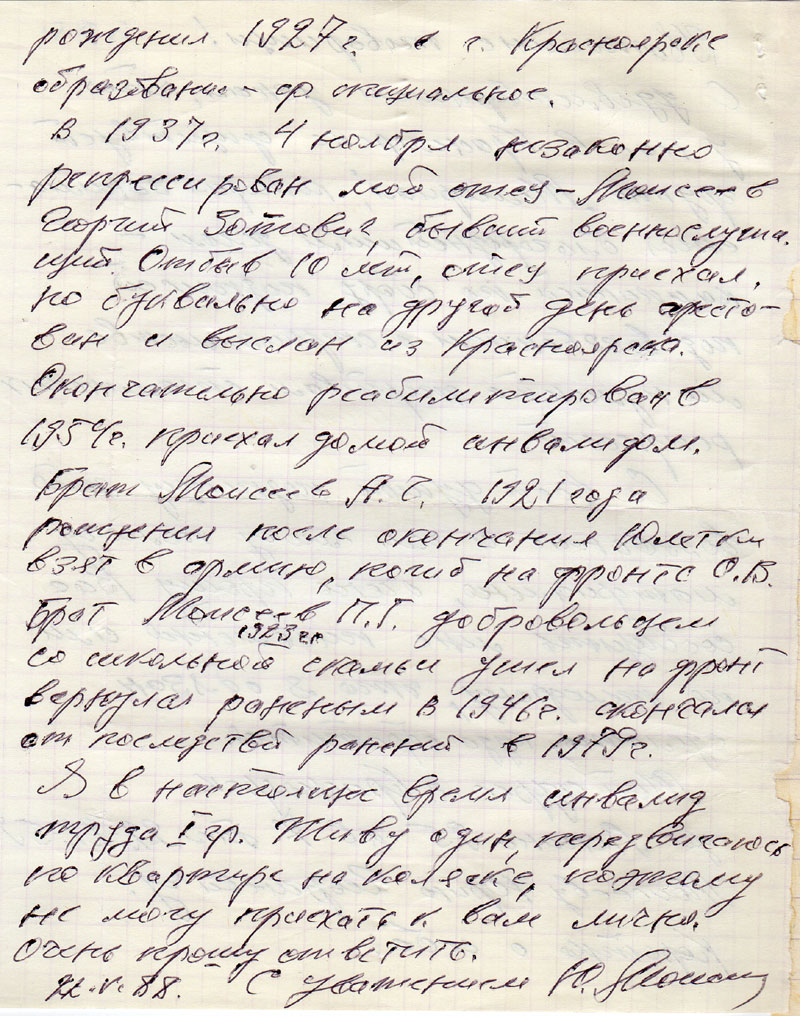 рождения 1927 г. в г. Красноярске
образование - ср. специальное.
В 1937 г. 4 ноября незаконно
репрессирован мой отец - Моисеев
Георгий Зотович, бывший военнослужа-
щий. Отбыв 10 лет, отец приехал,
но буквально на другой день аресто-
ван и выслан из Красноярска.
Окончательно реабилитирован в
1954 г. приехал домой инвалидом.
Брат Моисеев А. Г. 1921 года
рождения после окончания 10летки
взят в армию, погиб на фронте О.В.
Брат Моисеев П.Г. добровольцем
1923 г.р
со школьной скамьи ушел на фронт
вернулся раненым в 1946 г. скончался
от последствий ранений в 1979 г.
Я в настоящее время инвалид
труда I гр. Живу один, передвигаюсь
по квартире на коляске, поэтому
не могу приехать к вам лично.
Очень прошу ответить.
22.V.88. С уважением Ю.